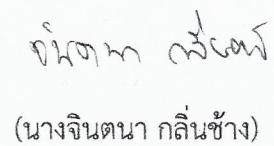 จินตนา กลิ่นช้าง
(นางจินตนา กลิ่นช้าง)